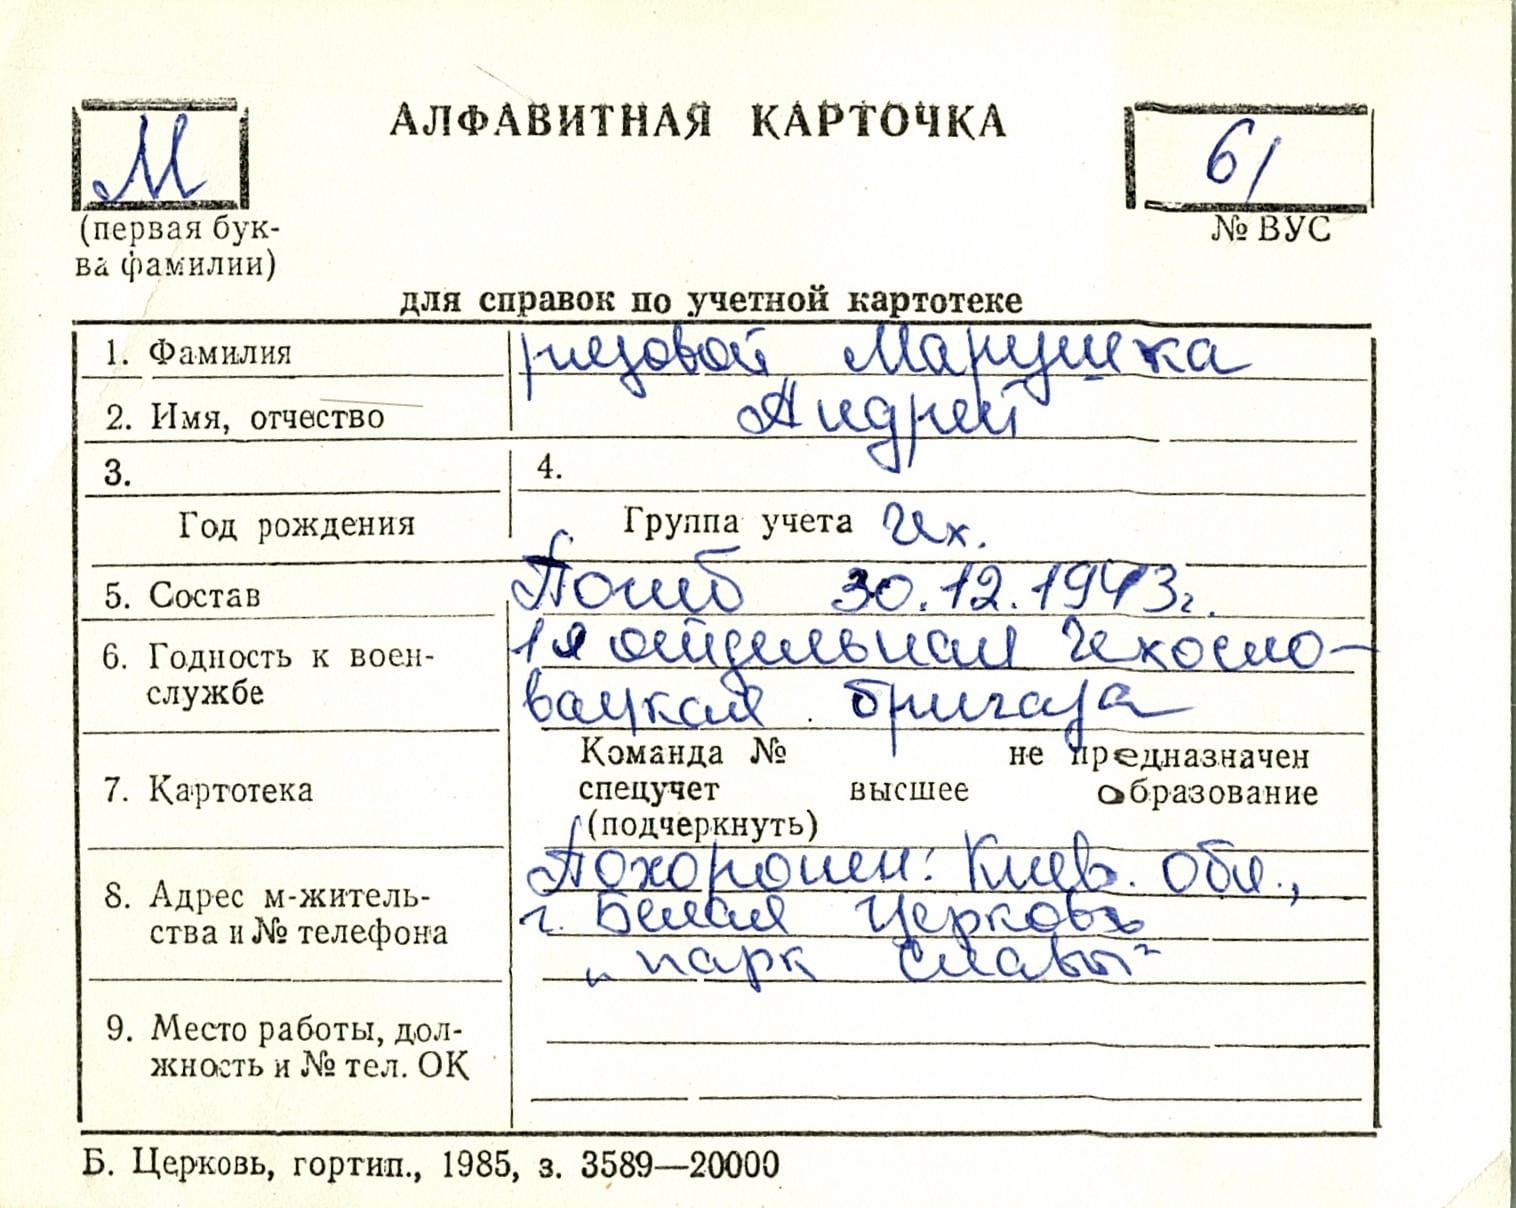 АЛФАВИТНАЯ КАРТОЧКА
М
61
(первая бук-
ва фамилии)
№ ВУС
для справок по учетной картотеке
1. Фамилия рядовой Марушка
2. Имя, отчество Андрей
3. 4.
Год рождения Группа учета Чех.
5. Состав Погиб 30.12.1943г.
6. Годность к воен- 1я отдельная Чехосло-
службе вацкая бригада
Команда № не предназначен
7. Картотека спецучет высшее образование
(подчеркнуть)
Похоронен: Киев. обл.,
8. Адрес м-житель- г. Белая Церковь
ства и № телефона „парк Славы"
9. Место работы, дол-
жность и № тел. ОК
Б. Церковь, гортип., 1985, з. 3589—20000